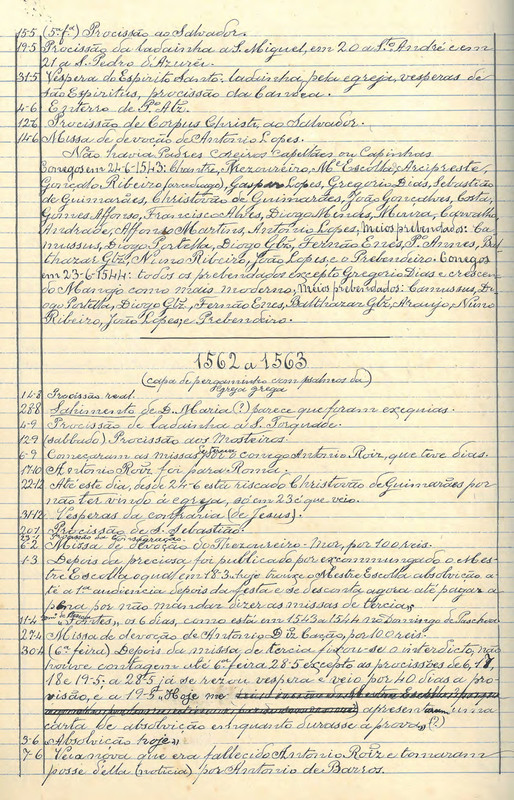 15-5 (5ª fª) Procissão ao Salvador.
19-5 Procissão da ladainha a S. Miguel, em 20 a Stº André e em
21 a S. Pedro d'Azurei.
31-5 Vespera do Espirito Santo: ladainha, pela egreja, vesperas de
São Espiritus, procissão da Candea.
4-6 Enterro de Pº Alz.
12-6 Procissão de Corpus Christi, ao Salvador.
14-6 Missa de devoção de Antonio Lopes.
Não havia Padres Coreiros Capellães ou Capinhas
Conegos em 24-6-1543: Chantre, Thezoureiro, Mᵉ Escolla, Arcipreste,
Gonçalo Ribeiro (araduaga), Gaspar Lopes, Gregorio Dias, Sebastião
de Guimarães, Christovão de Guimarães, João Gonçalves, Costa,
Gomes Affonso, Francisco Alves, Diogo Mendes, Moura, Carvalho,
Andrade, Affonso Martins, Antonio Lopes, Meios prebendados: Ca-
mussus, Diogo Portella, Diogo Glz, Fernão Enes, Pº Annes, Bal-
thazar Glz, Nuno Ribeiro, João Lopes, e o Prebendeiro. Conegos
em 23-6-1544: todos os prebendados excepto Gregorio Dias e crescen-
do Manojo como mais moderno, Meios prebendados: Camussus, Dio-
go Portella, Diogo Glz, Fernão Enes, Balthazar Glz, Araujo, Nuno
Ribeiro, João Lopes, e Prebendeiro.
1562 a 1563
(capa de pergaminho com psalmos da
Egreja grega
14-8 Procissão real.
28-8 Sahimento de D. Maria (?) parece que foram exequias.
4-9 Procissão de ladainha a S. Torquade.
12-9 (sabbado) Procissão aos Mosteiros.
6-9 Começaram as missas por o conego Antonio Roiz, que teve dias.
17-10 Antonio Roiz foi para Roma.
22-12 Até este dia, desde 24-6 está riscado Christovão de Guimarães por
não ter vindo à egreja, só em 23 é que veio.
31-12 Vesperas da confraria (de Jesus).
20-1 Procissão de S. Sebastião.
23-1 Procissão da Consagração.
6-2 Missa de devoção do Thezoureiro-Mor, por 100 reis.
1-3 Depois da preciosa foi publicado por excommungado o Mes-
tre Escolla o qual em 18-3 "hoje trouxe o Mestre Escolla absolvição a-
té a 1ª audiencia depois da festa e se desconta agora até pagar a
pena por não mandar dizer as missas de tercia"
11-4 "Fortes", os 6 dias, como está em 1543 a 1544 no Domingo de Paschoa
27-4 Missa de devoção de Antonio Diz Cação, por 100 reis.
30-4 (6ª feira) Depois da missa de tercia fixou-se o interdicto, não
houve contagem até 6ª feira 28-5 excepto as procissões de 6, 17,
18 e 19-5. a 28-5 já se rezou vespera e veio por 40 dias a pro-
visão, e a 19-5 "Hoje me
apresentaram uma
carta de absolvição emquanto durasse a prova" (?)
3-6 "Absolvição hoje"
7-6 Veia nova que era fallecido Antonio Roiz e tomaram
posse d'ella (noticia) por Antonio de Barros.